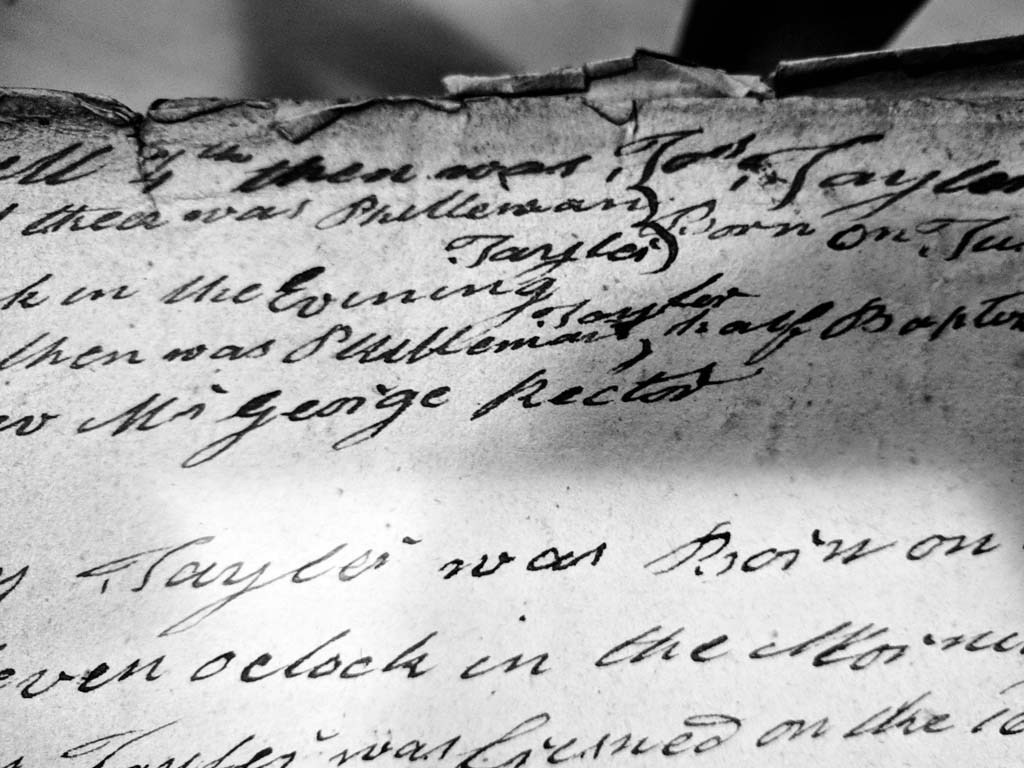 then was Joss Tayler
then was Philleman
Tayler } Born on Tu
k in the Evining
Tayler
then was Philleman, half Baptiz
Mr George Rector
y Tayler was Born on
leven oclock in the Mornin
Tayler was Cirsned on the 10